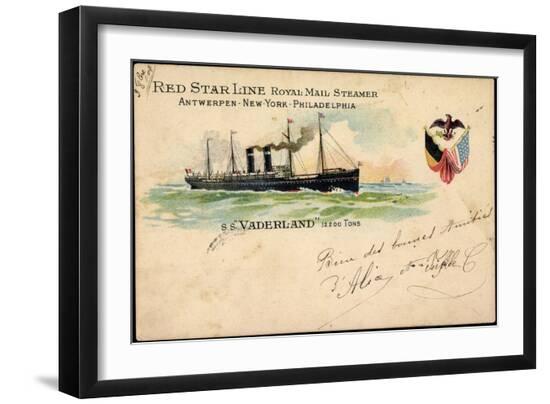 RED STAR LINE ROYAL MAIL STEAMER
ANTWERPEN - NEW-YORK - PHILADELPHIA
S.S. "VADERLAND" 12200 TONS
Bien des bonnes Amitiés
d'Alia